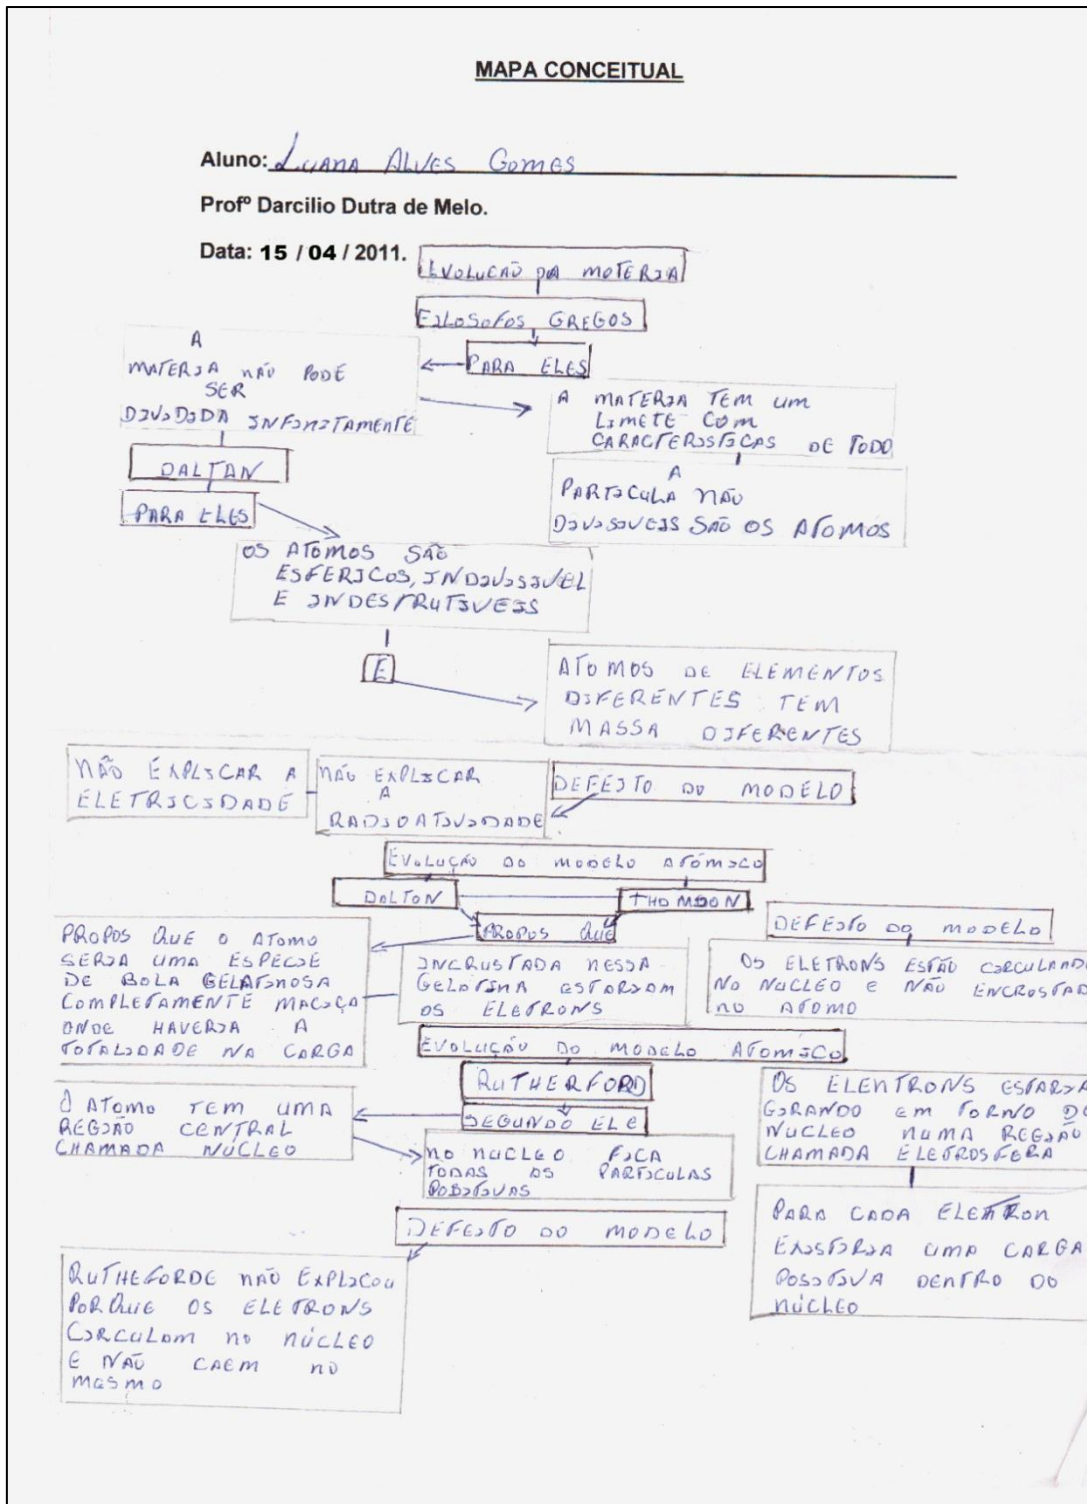 MAPA CONCEITUAL
Aluno: LUANA ALVES GOMES
Profº Darcilio Dutra de Melo.
Data: 15 / 04 / 2011.
EVOLUCAÕ DA MOTERIA
FILOSOFOS GREGOS
PARA ELES
A
MATERIA NÃO PODE
SER
DIVIDIDA INFINITAMENTE
A MATERIA TEM UM
LIMETE COM
CARACTERISTICAS DE TODO
DALTAN
PARA ELES
A
PARTICULA NÃO
DIVISIVEIS SÃO OS ATOMOS
OS ATOMOS SÃO
ESFERICOS, INDIVISIVEL
E INDESTRUTIVEIS
E
ATOMOS DE ELEMENTOS
DIFERENTES TEM
MASSA DIFERENTES
NÃO EXPLICAR A
ELETRICIDADE
NÃO EXPLICAR
A
RADIOATIVIDADE
DEFEITO DO MODELO
EVOLUÇÃO DO MODELO ATÔMICO
DOLTON
THOMSON
PROPOS QUE
DEFEITO DO MODELO
PROPOS QUE O ATOMO
SERIA UMA ESPECIE
DE BOLA GELATINOSA
COMPLETAMENTE MACIÇA
ONDE HAVERIA A
TOTALIDADE NA CARGA
INCRUSTADA NESSA
GELATINA ESTARIAM
OS ELETRONS
OS ELETRONS ESTÃO CIRCULANDO
NO NUCLEO E NÃO ENCROSTAD
NO ATOMO
EVOLUÇÃO DO MODELO ATOMICO
RUTHERFORD
SEGUNDO ELE
O ATOMO TEM UMA
REGIÃO CENTRAL
CHAMADA NÚCLEO
NO NUCLEO FICA
TODAS AS PARTICULAS
POSITIVAS
OS ELENTRONS ESTARIA
GIRANDO EM TORNO DO
NUCLEO NUMA REGIÃO
CHAMADA ELETROSFERA
PARA CADA ELETRON
EXISTIRIA UMA CARGA
POSITIVA DENTRO DO
NÚCLEO
DEFEITO DO MODELO
RUTHEFORDE NÃO EXPLICOU
PORQUE OS ELETRONS
CIRCULAM NO NÚCLEO
E NÃO CAEM NO
MESMO